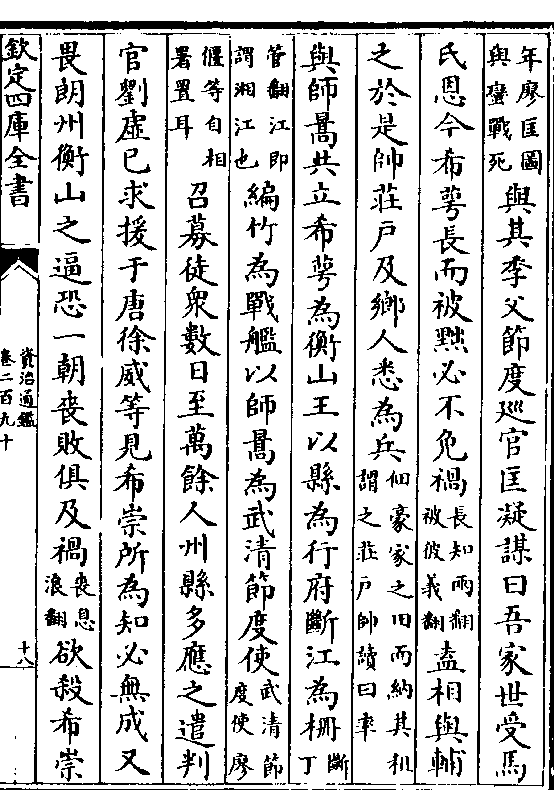 年廖匡圖與蠻戰死與其季父節度廵官匡凝謀曰吾家世受馬
氏恩今希萼長而被黜必不免禍長知兩翻被彼義翻盍相與輔
之於是帥莊戸及鄉人悉為兵佃豪家之田而納其租謂之莊戸帥讀曰率
與師暠共立希萼為衡山王以縣為行府斷江為柵斷丁
管翻江即謂湘江也編竹為戰艦以師暠為武清節度使武清節度使廖
偃等自相署置耳召募徒衆數日至萬餘人州縣多應之遣判
官劉虛已求援于唐徐威等見希崇所為知必無成又
畏朗州衡山之逼恐一朝喪敗俱及禍喪息浪翻欲殺希崇
欽定四庫全書
資治通鑑
卷二百九十
十八